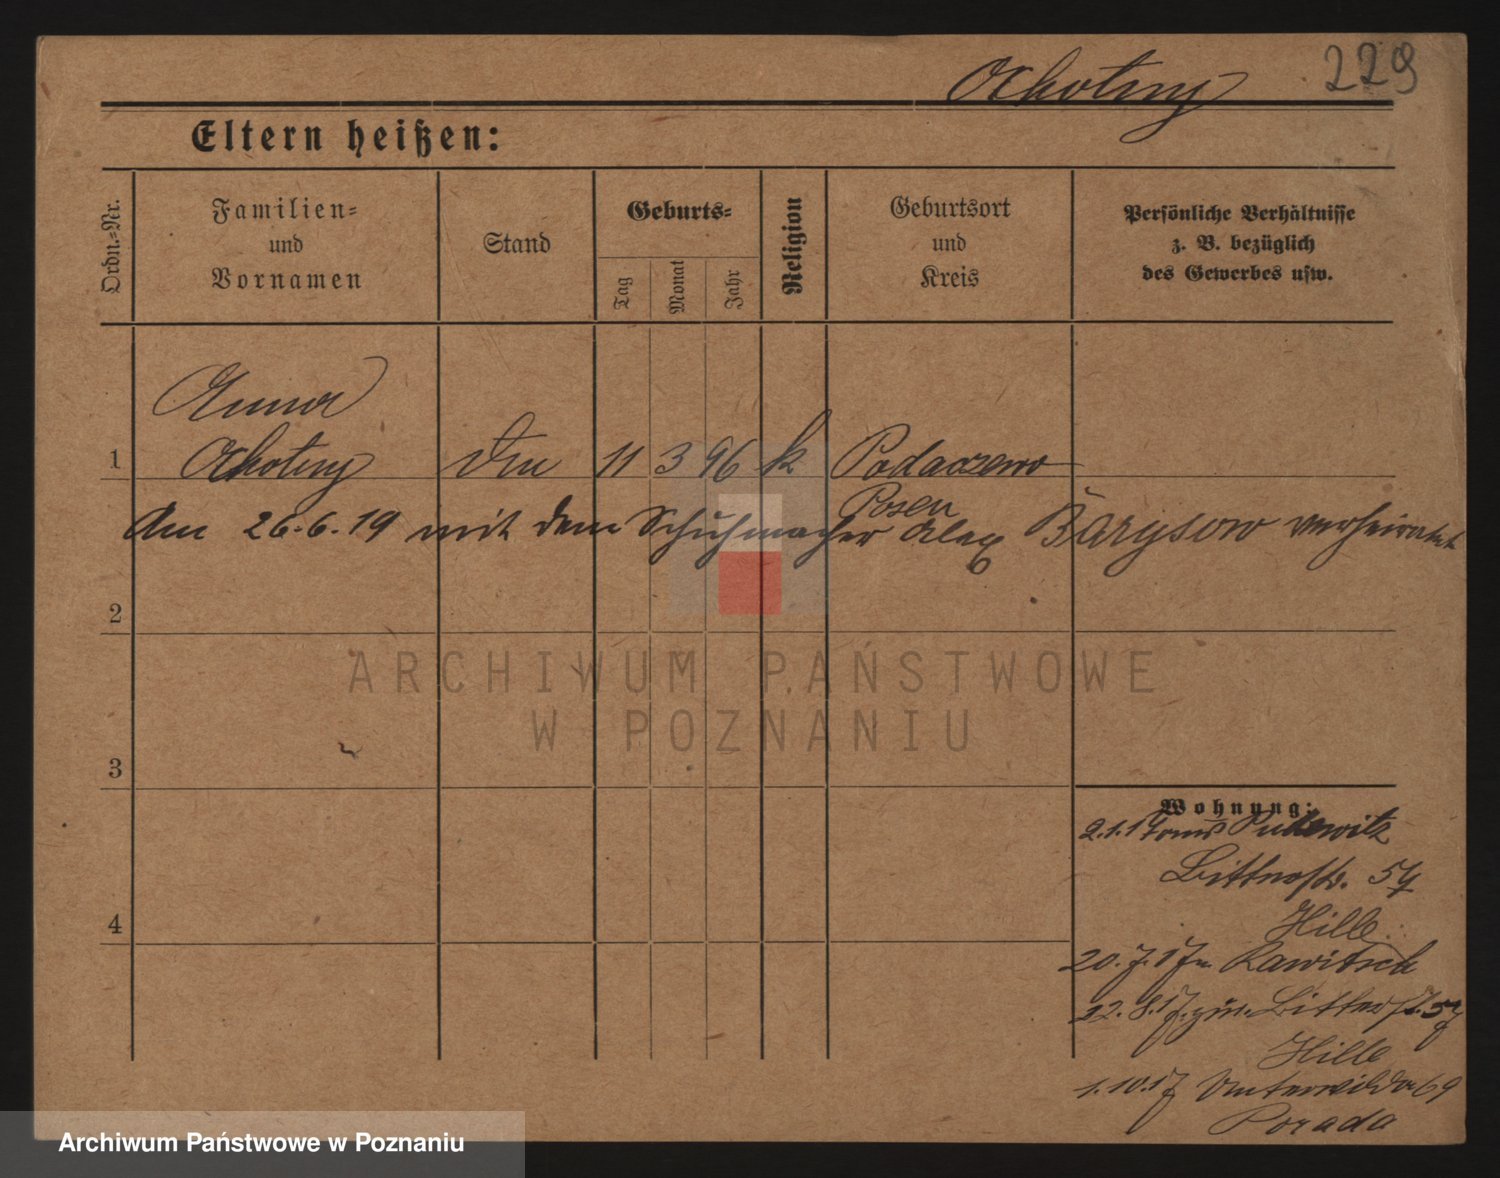 229
Ochotny
Eltern heißen:
Ordn.=Nr.
Familien=
und
Vornamen
Stand
Geburts=
Tag
Monat
Jahr
Religion
Geburtsort
und
Kreis
Persönliche Verhältnisse
z. B. bezüglich
des Gewerbes usw.
Anna
1 Ochotny 11 3 96 k Podaczewo
Posen
Am 26.6.19 mit dem Schuhmacher Alex Barysow verheiratet
2
3
4
Wohnung:
2.1.17 Pudewitz
Bitterstr. 57
Hille
20.7.17 n. Rawitsch
22.8.17 zur. Bitterstr. 57
Hille
1.10.17 Unterwilda 69
Porada
ARCHIWUM PAŃSTWOWE
W POZNANIU
Archiwum Państwowe w Poznaniu